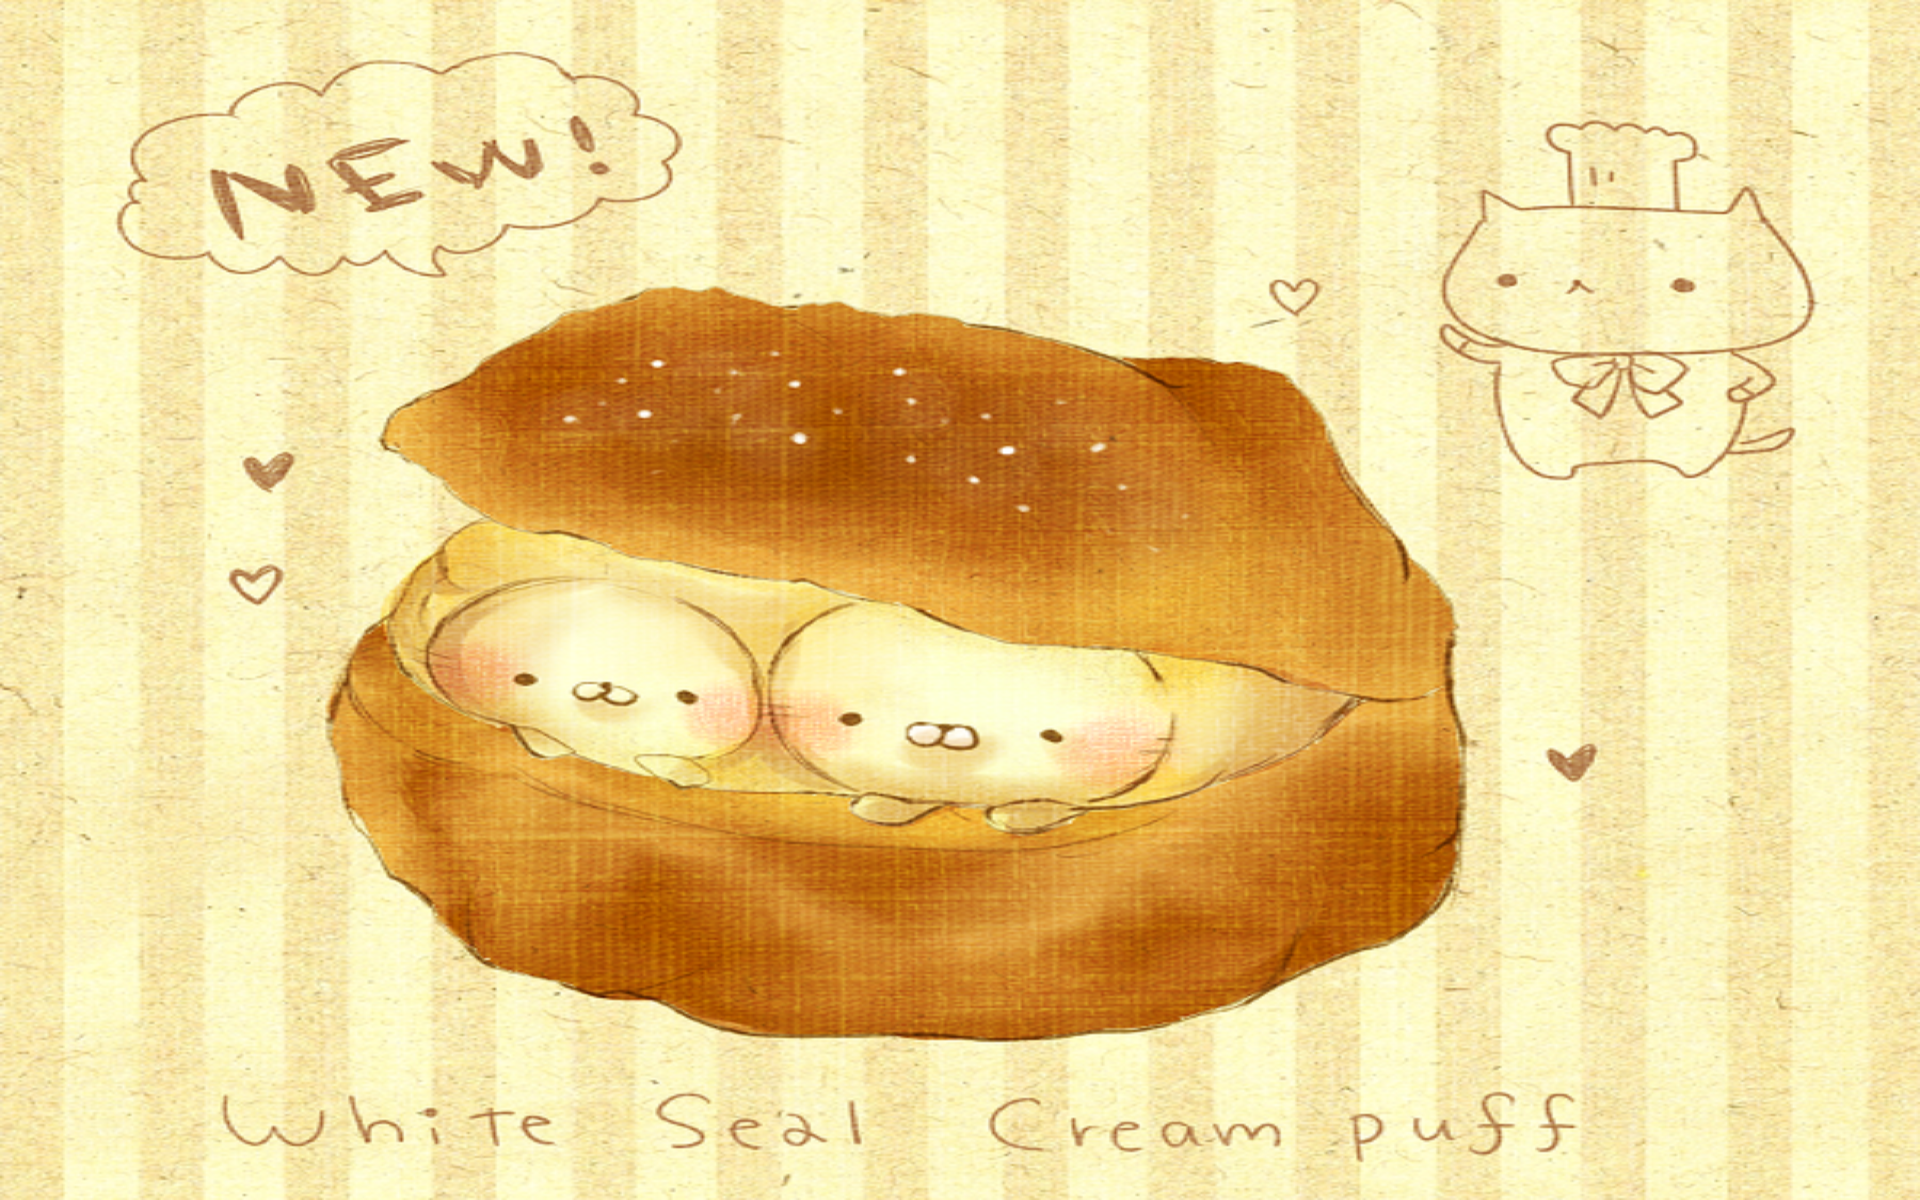 NEW!
White Seal Cream puff